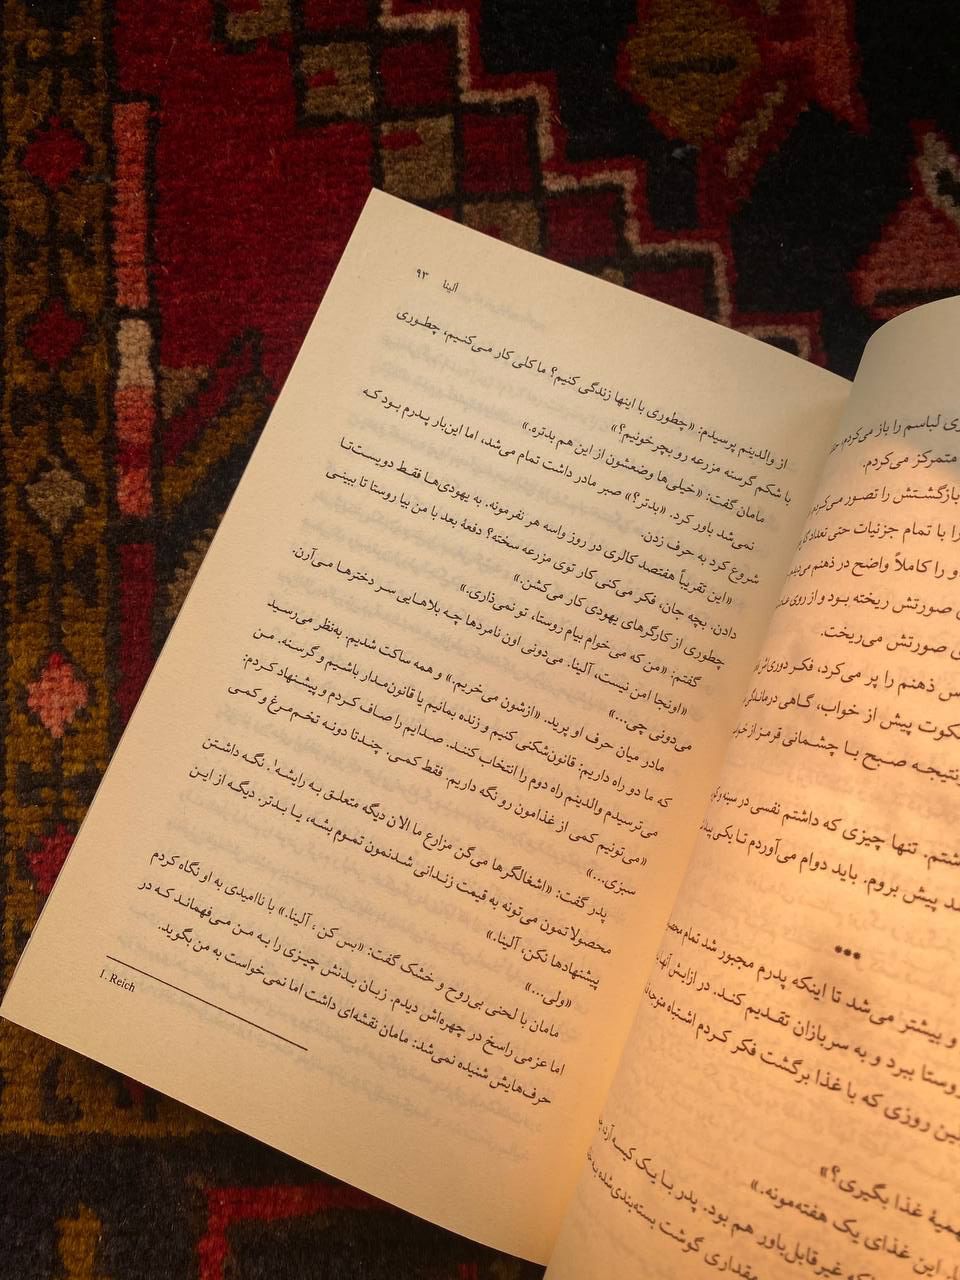 آلینا ۹۳
از والدینم پرسیدم: «چطوری با اینها زندگی کنیم؟ ما کلی کار می‌کنیم، چطوری
با شکم گرسنه مزرعه رو بچرخونیم؟»
مامان گفت: «خیلی‌ها وضعشون از این هم بدتره.»
نمی‌شد باور کرد. «بدتر؟» صبر مادر داشت تمام می‌شد، اما این‌بار پدرم بود که
شروع کرد به حرف زدن.
«این تقریباً هفتصد کالری در روز واسه هر نفرمونه. به یهودی‌ها فقط دویست‌تا
دادن. بچه جان، فکر می‌کنی کار توی مزرعه سخته؟ دفعهٔ بعد با من بیا روستا تا ببینی
چطوری از کارگرهای یهودی کار می‌کشن.»
گفتم: «من که می‌خوام بیام روستا، تو نمی‌ذاری.»
«اونجا امن نیست، آلینا. می‌دونی اون نامردها چه بلاهایی سر دخترها می‌آرن.
می‌دونی چی...»
مادر میان حرف او پرید. «ازشون می‌خریم.» و همه ساکت شدیم. به‌نظر می‌رسید
که ما دو راه داریم: قانون‌شکنی کنیم و زنده بمانیم یا قانون‌مدار باشیم و گرسنه. من
می‌ترسیدم والدینم راه دوم را انتخاب کنند. صدایم را صاف کردم و پیشنهاد کردم:
«می‌تونیم کمی از غذامون رو نگه داریم. فقط کمی. چندتا دونه تخم‌مرغ و کمی
سبزی...»
پدر گفت: «اشغالگرها می‌گن مزارع ما الان دیگه متعلق به رایشه۱. نگه داشتن
محصولا تمون می‌تونه به قیمت زندانی شدنمون تموم بشه، یا بدتر. دیگه از این
پیشنهادها نکن، آلینا.»
«ولی...»
مامان با لحنی بی‌روح و خشک گفت: «بس کن، آلینا.» با ناامیدی به او نگاه کردم
اما عزمی راسخ در چهره‌اش دیدم. زبان بدنش چیزی را به من می‌فهماند که در
حرف‌هایش شنیده نمی‌شد: مامان نقشه‌ای داشت اما نمی‌خواست به من بگوید.
1. Reich
لباسم را باز می‌کردم،
متمرکز می‌کردم.
بازگشتش را تصور می‌کردم
را با تمام جزئیات حتی تعداد
و را کاملاً واضح در ذهنم
صورتش ریخته بود و از روی
صورتش می‌ریخت.
ذهنم را پر می‌کرد، فکر
پیش از خواب، گاهی
نتیجه صبح با چشمانی قرمز از
تنها چیزی که داشتم نفسی در سینه
پیش بروم. باید دوام می‌آوردم تا
***
و بیشتر می‌شد تا اینکه پدرم مجبور شد تمام
ببرد و به سربازان تقدیم کند. در ازایش
روزی که با غذا برگشت فکر کردم اشتباه
غذا بگیری؟»
این غذای یک هفته‌مونه.»
غیرقابل‌باور هم بود. پدر با یک کیسه آرد
مقداری گوشت بسته‌بندی‌شده